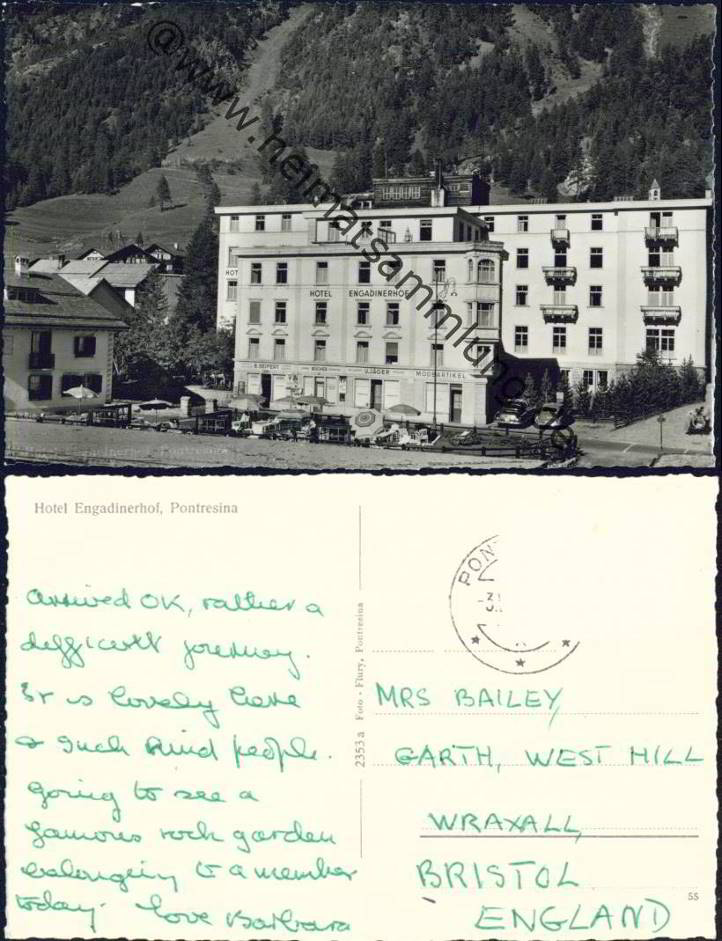 @www.heimatsammlung.de
HOT
HOTEL ENGADINERHOF
B. SEIFERT
BÜCHER
U. JÄGER
MODEARTIKEL
Engadinerhof, Pontresina
Hotel Engadinerhof, Pontresina
PON
arrived OK, rather a
difficult journey.
It is lovely here
& such kind people.
going to see a
famous rock garden
belonging to a member
today. love Barbara
2353 a Foto - Flury, Pontresina
MRS BAILEY,
GARTH, WEST HILL
WRAXALL,
BRISTOL
ENGLAND
55